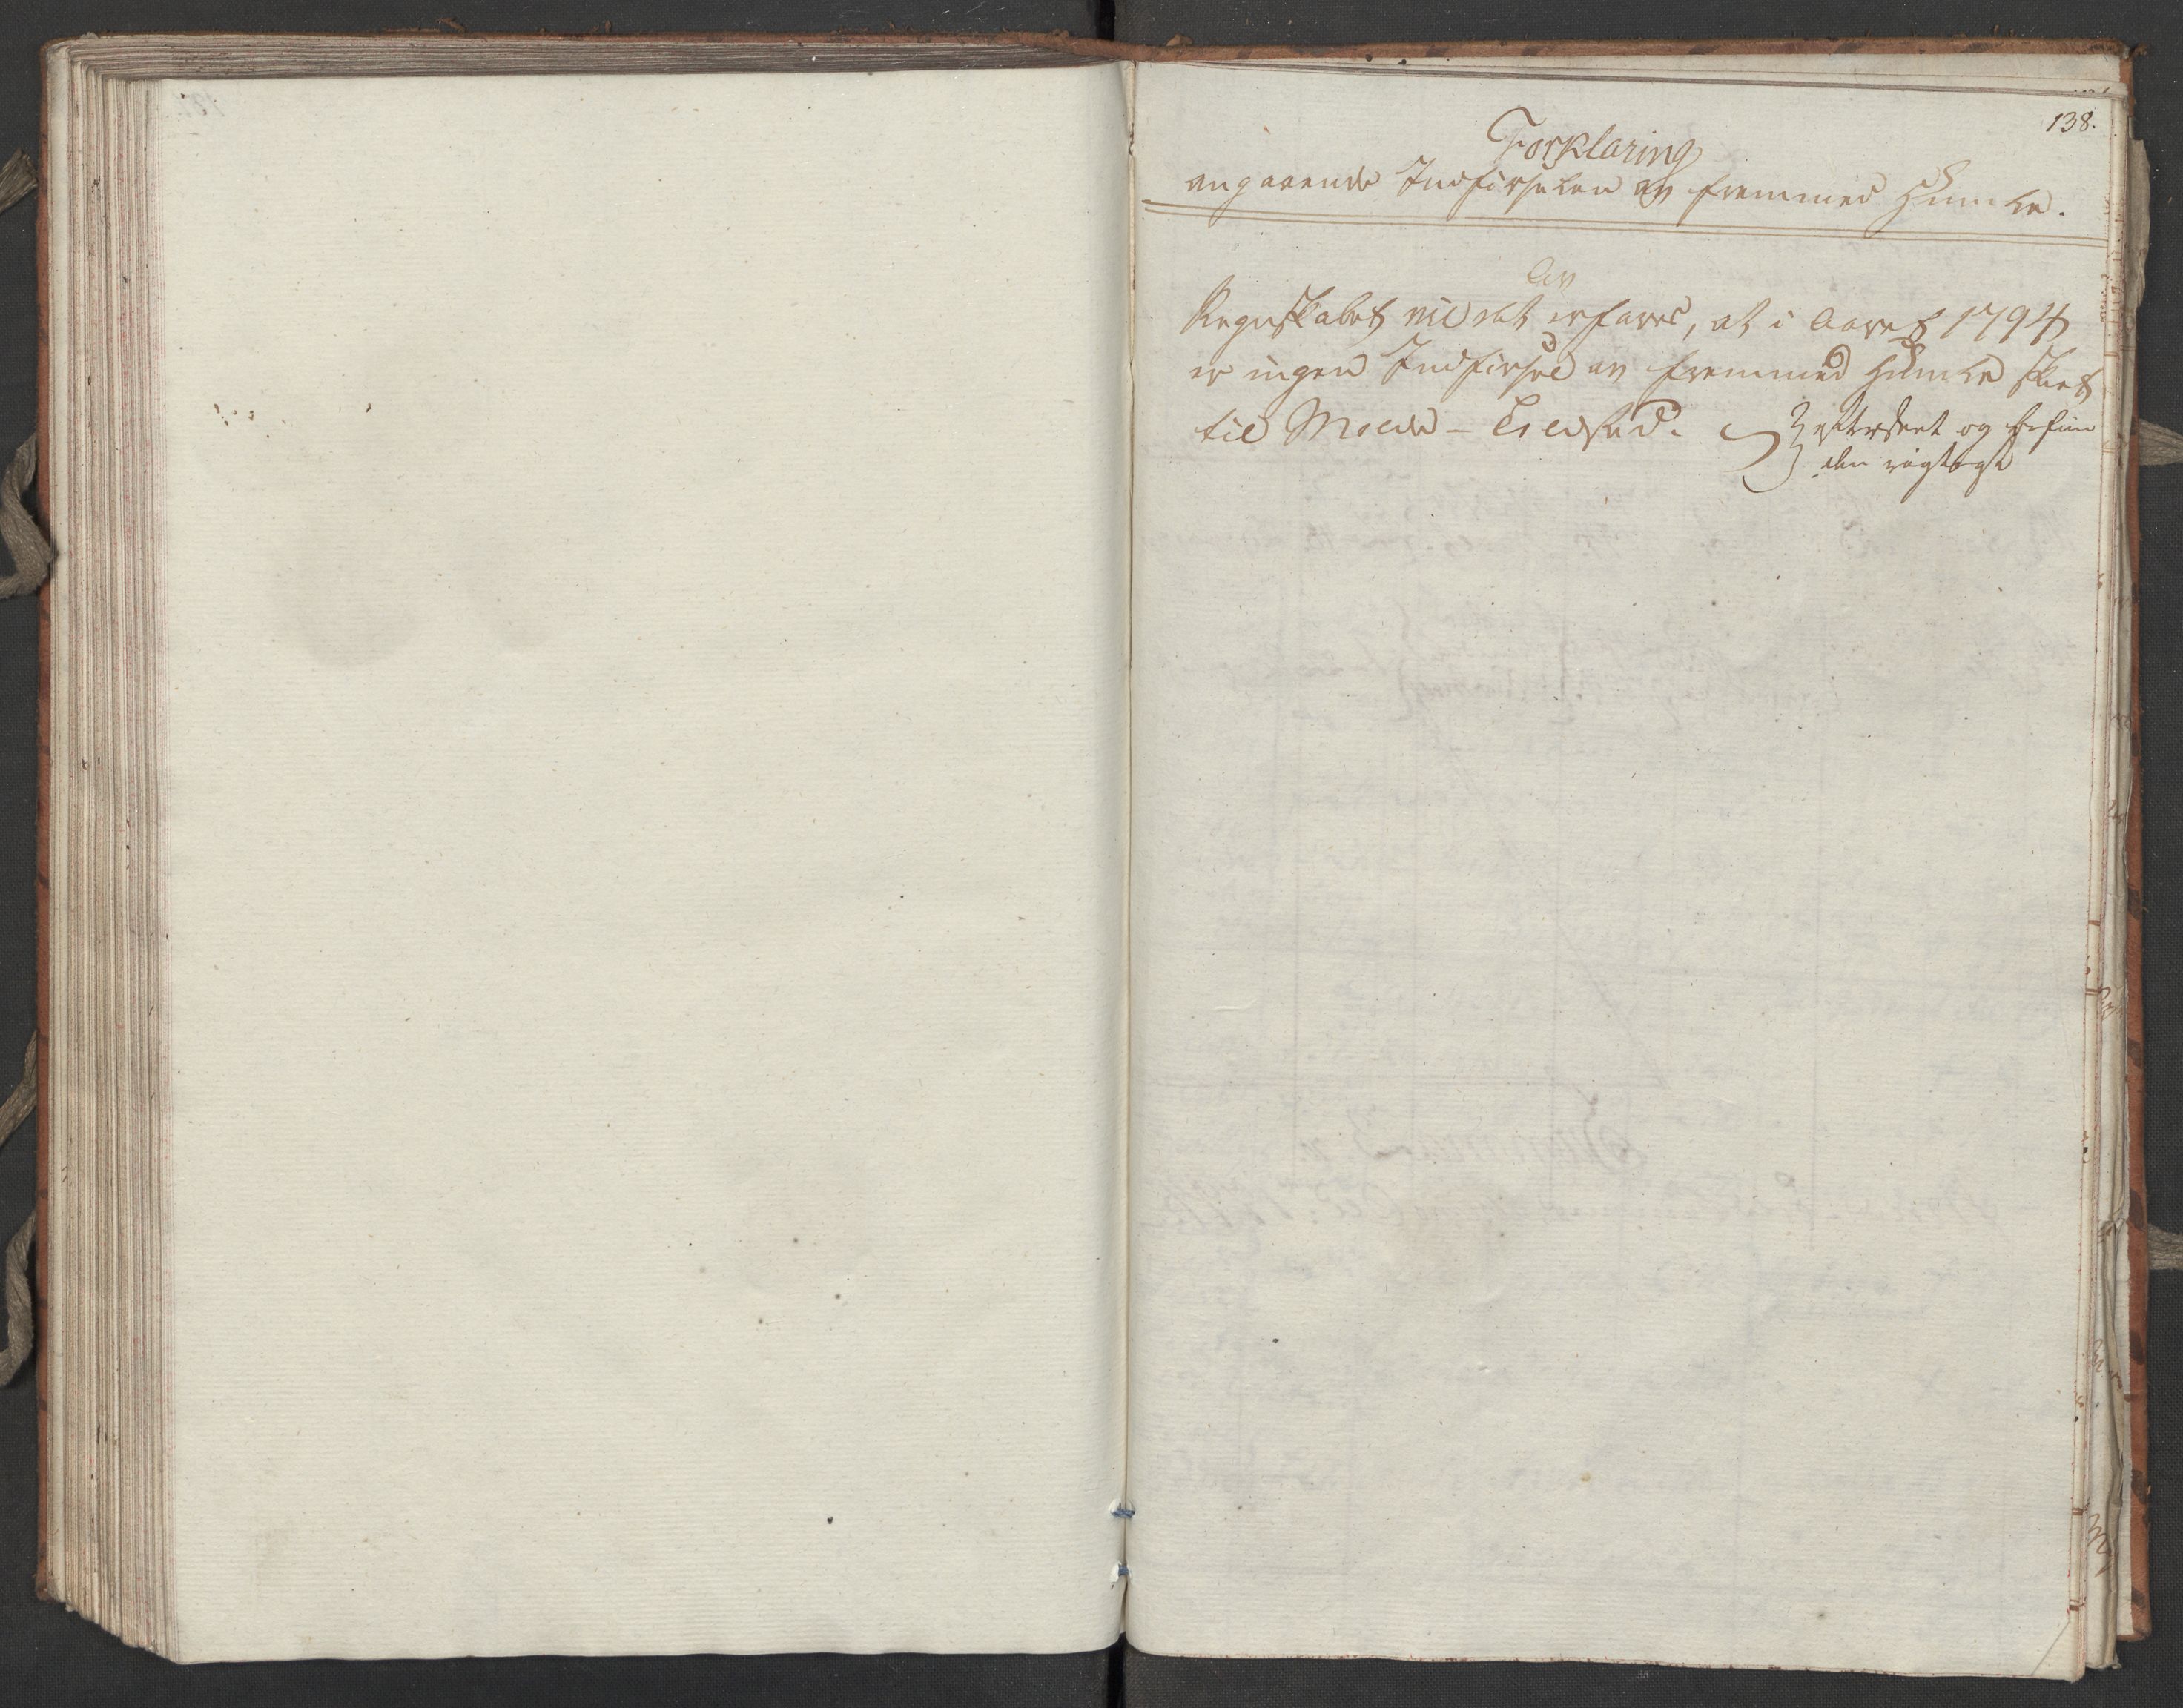 138.
Forklaring
angaaende Indførselen af fremmed Humle.
Av
Regnskabet vil det erfares, at i Aaret 1794
er ingen Indførsel av fremmed Humle skeet
til Molde - Toldsted.
efterseet og befun
den rigtigt